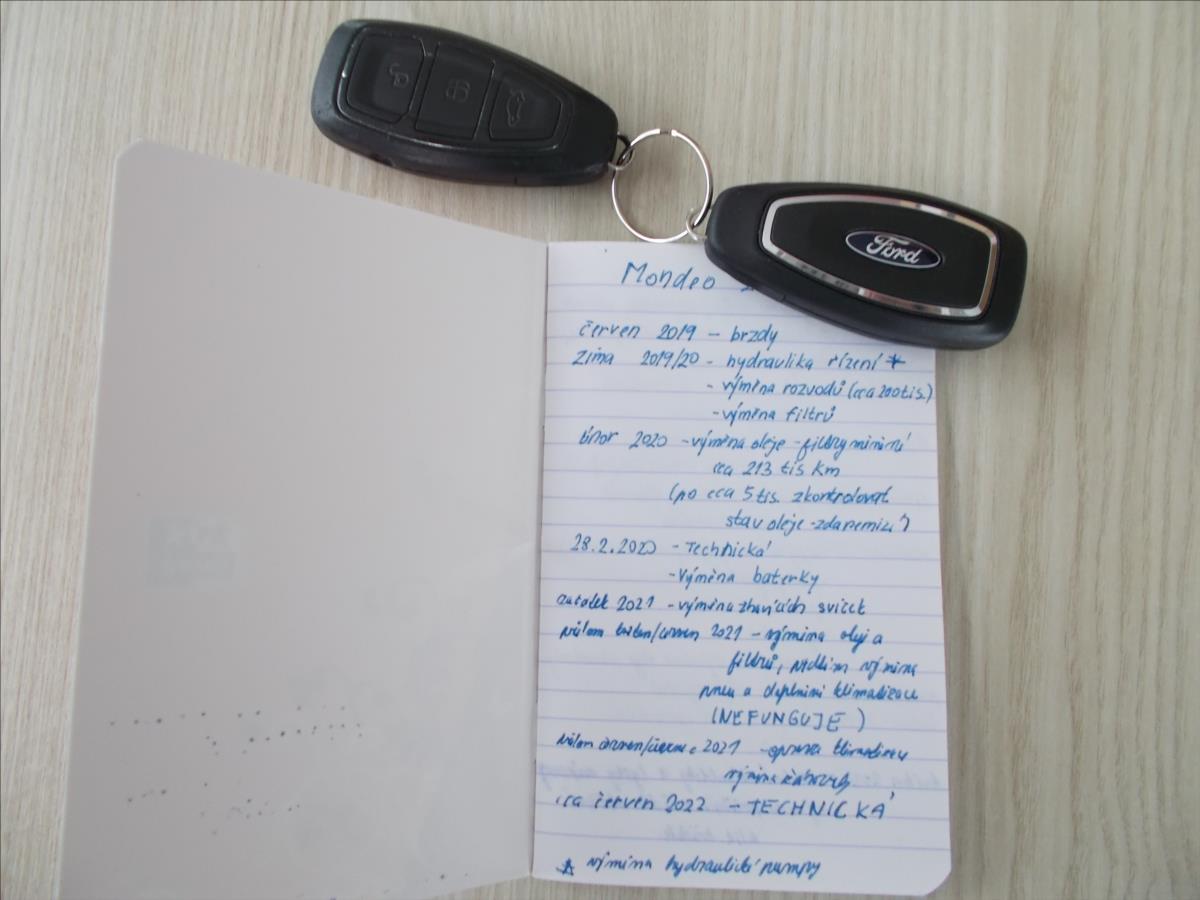 Ford
Mondeo
červen 2019 – brzdy
zima 2019/20 - hydraulika řízení *
- výměna rozvodů (cca 200 tis.)
- výměna filtrů
únor 2020 - výměna oleje - filtry
cca 213 tis km
(po cca 5 tis. zkontrolovat
stav oleje - zda nemizí)
28.2.2020 - Technická
- Výměna baterky
začátek 2021 - výměna žhavících svíček
přelom květen/červen 2021 - výměna oleje a
filtrů, výměna
pneu a doplnění klimatizace
(NEFUNGUJE)
přelom červen/červenec 2021 - oprava klimatizace
výměna
cca červen 2022 - TECHNICKÁ
* výměna hydraulické pumpy